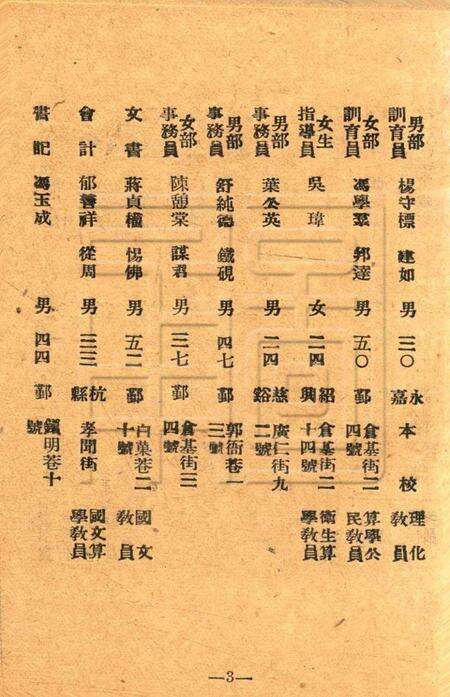 男部訓育員 楊守標 建如 男 三〇 永嘉 本校 理化教員
女部訓育員 馮學羣 邦達 男 五〇 鄞 倉基街二四號 算學公民教員
女生指導員 吳瑋 女 二四 紹興 倉基街二十四號 衛生算學教員
男部事務員 葉公英 男 二四 慈谿 廣仁街九二號
男部事務員 舒純德 鐵硯 男 四七 鄞 郭衙巷一三號
女部事務員 陳憩棠 謀君 男 三七 鄞 倉基街三四號
文書 蔣貞櫨 惕佛 男 五二 鄞 白菓巷二十號 國文教員
會計 郁善祥 從周 男 三三 杭縣 孝聞街 國文算學教員
書記 馮玉成 男 四四 鄞 鎮明巷十號
—3—